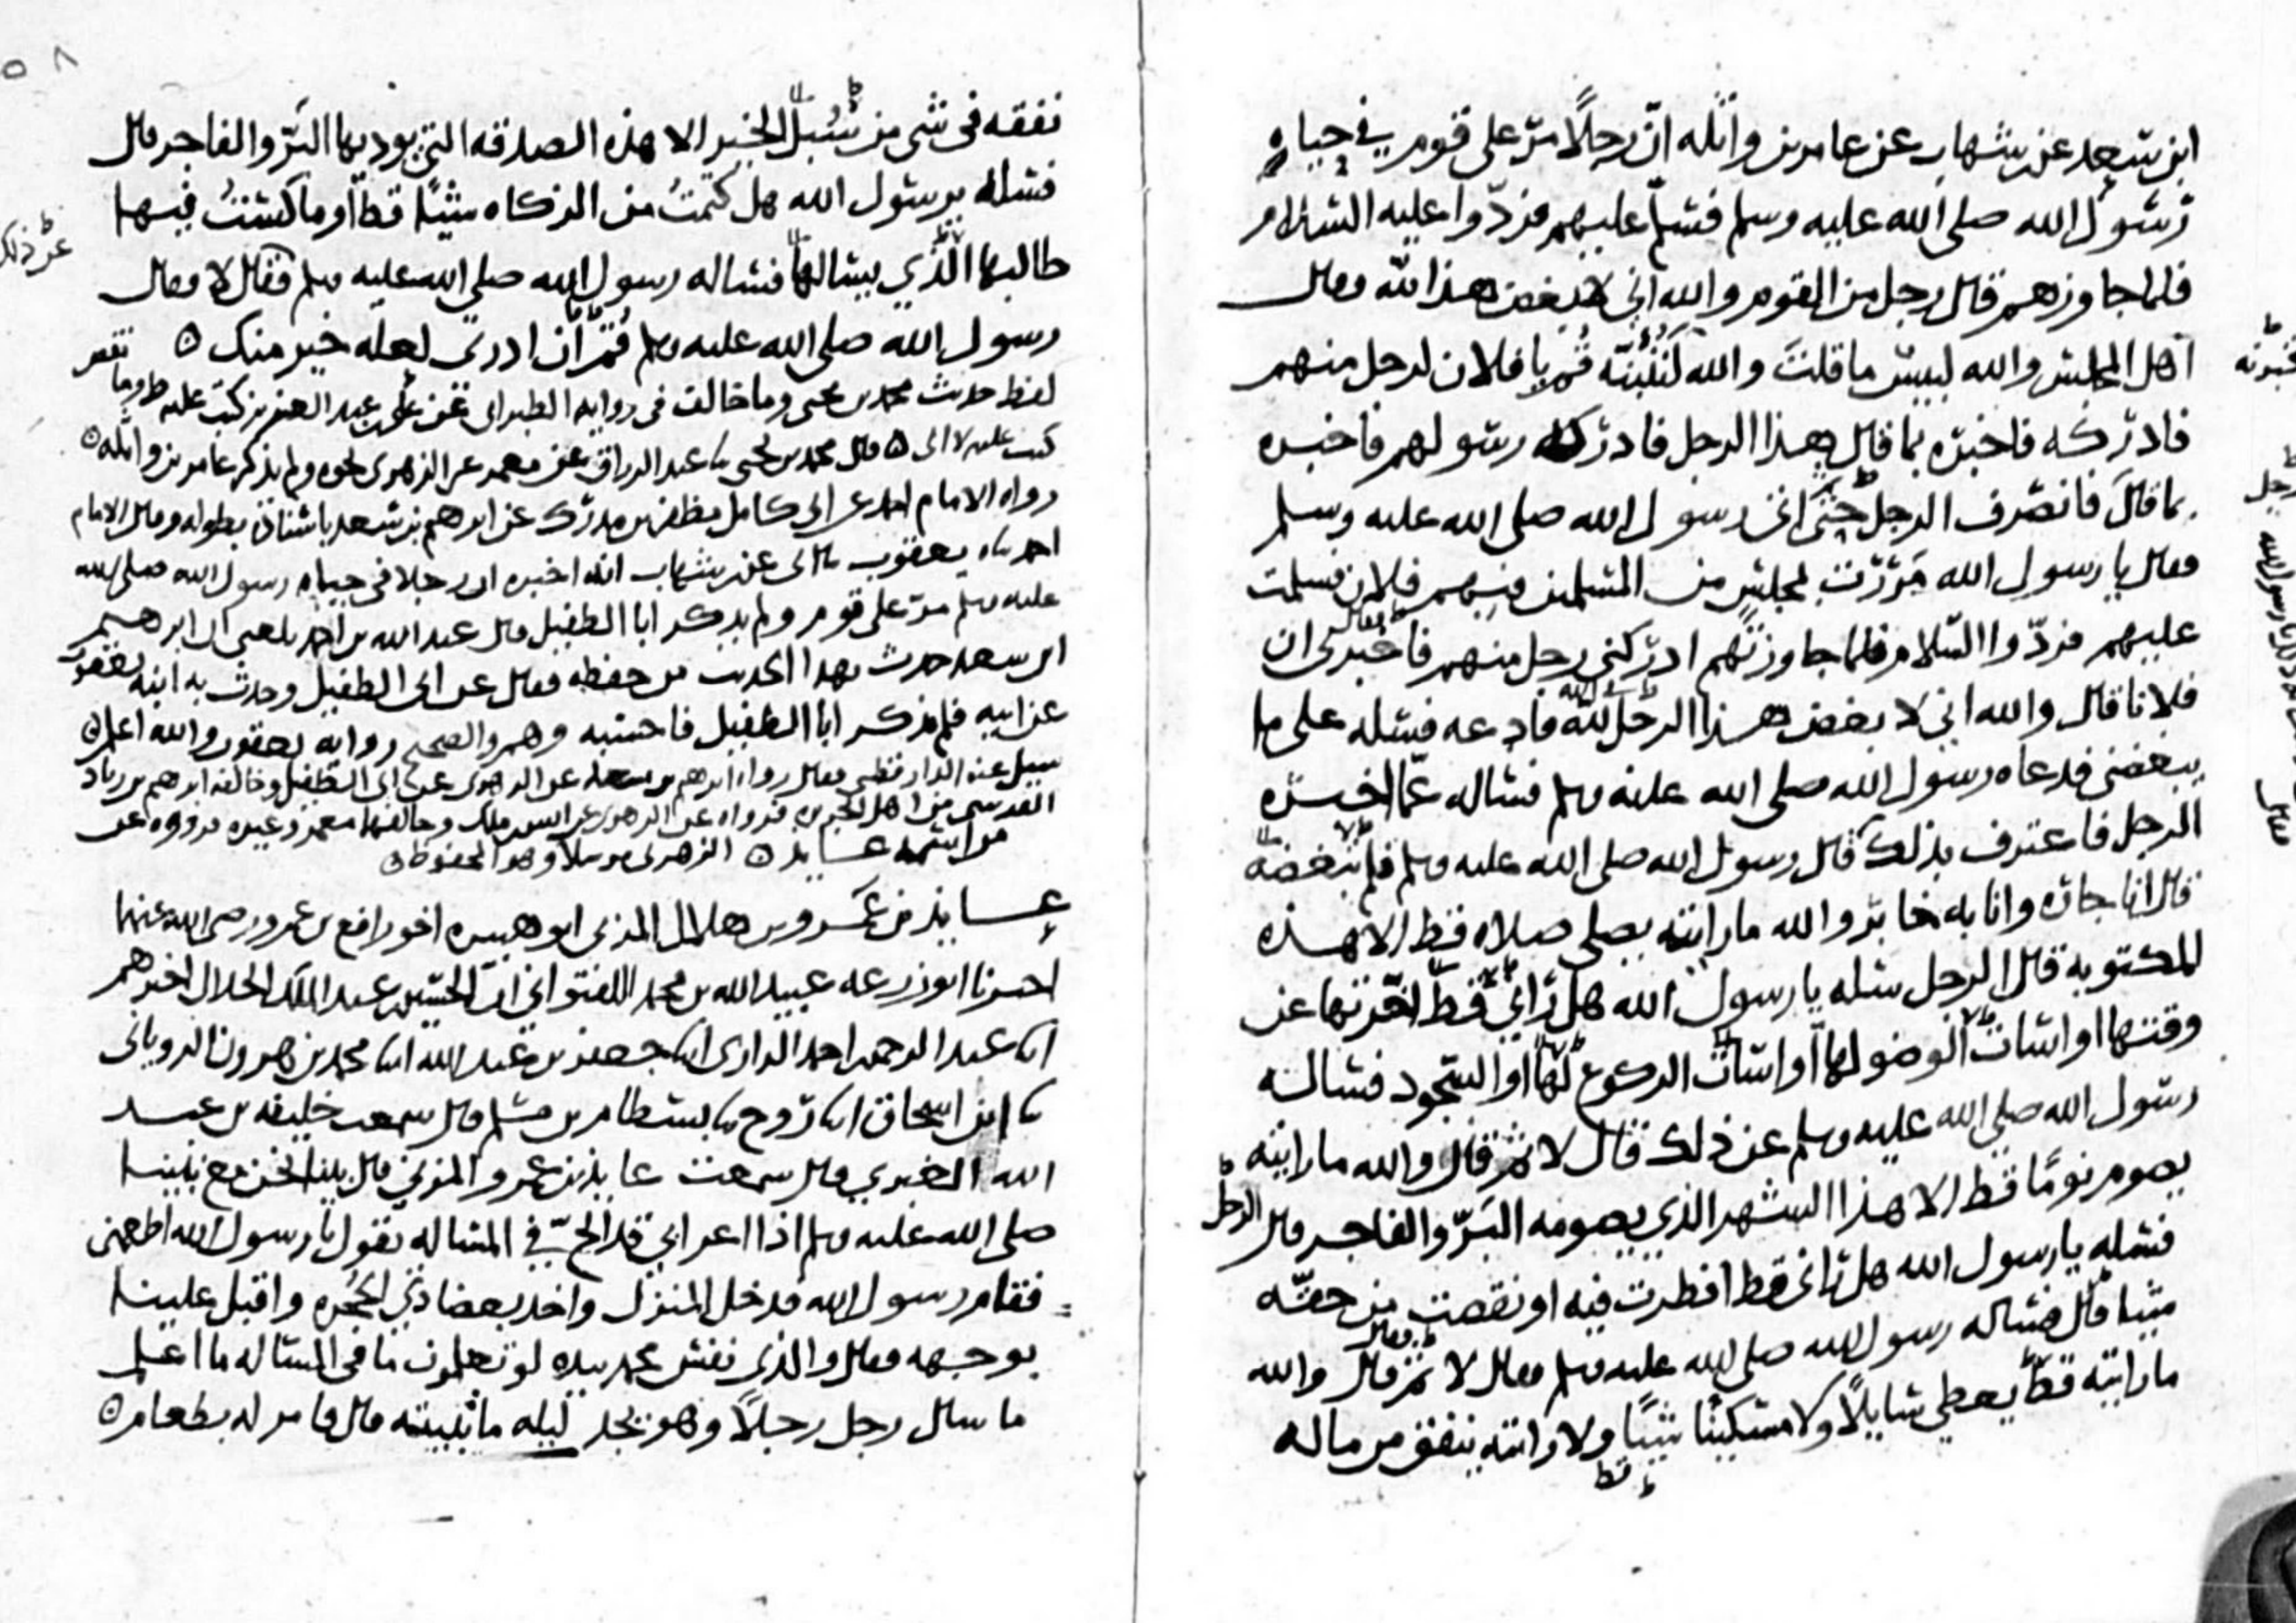 ابن سعد عن بن شهاب عن عامر بن واثله انّ رجلًا مرّ على قوم في حياه
رسول الله صلى الله عليه وسلم فسلّم عليهم فردّوا عليه السلام
فلما جاوزهم قال رجل من القوم والله اني لابغض هذا لله فقال
اهل المجلس والله لبيس ما قلتَ والله لَنُنَبِّئنّه قُم يا فلان لرجل منهم
فادركه فاخبره بما قال هذا الرجل فادركه رسولهم فاخبره
بما قال فانصرف الرجل حتى اتى رسول الله صلى الله عليه وسلم
فقال يا رسول الله مَرَرْت بمجلس من المسلمين فيهم فلان فسلمت
عليهم فردّوا السّلام فلما جاوزتهم ادركني رجل منهم فاخبرني ان
فلانا قال والله اني لابغض هذا الرجل لله فادعه فسله على ما
يبغضني فدعاه رسول الله صلى الله عليه وسلم فساله عمّا اخبره
الرجل فاعترف بذلك قال رسول الله صلى الله عليه وسلم فلم تبغضه
قال انا جاره وانا به خابر والله ما رايته يصلي صلاه قط الا هذه
المكتوبه قال الرجل سله يا رسول الله هل رآني قط اخّرتها عن
وقتها او اسات الوضو لها او اسات الركوع لها او السجود فساله
رسول الله صلى الله عليه وسلم عن ذلك قال لا ثم قال والله ما رايته
يصوم يومًا قط الا هذا الشهر الذي يصومه البَرّ والفاجر قال الرجل
فسله يا رسول الله هل رآني قط افطرت فيه او نقصت من حقّه
شيا قال فساله رسول الله صلى الله عليه وسلم فقال لا ثم قال والله
ما رايته قطّ يعطي سايلًا ولا مسكينًا شيًا ولا رايته ينفق من ماله
قط
نفقه في شي من سُبُل الخير الا هذه الصدقه التي يوديها البَرّ والفاجر قال
فسله يا رسول الله هل كتمتُ من الزكاه شيًا قطّ او ماكستُ فيها
طالبها الّذي يسالها فساله رسول الله صلى الله عليه وسلم فقال لا فقال
عن ذلك
رسول الله صلى الله عليه وسلم قُم ان ادري لعله خير منك ٥
لفظ حديث محمد بن يحيى وما خالف في روايه الطبراني عن علي عبد العزيز كتب عليه ط وما
كتب عليه لا الى ٥ قال محمد بن يحيى نا عبد الرزاق عن معمر عن الزهري نحوه ولم يذكر عامر بن واثله ٥
رواه الامام احمد عن ابي كامل مظفر بن مدرك عن ابرهيم بن سعد باسناده بطوله وقال الامام
احمد نا يعقوب نا ابي عن بن شهاب انه اخبره ان رجلا في حياه رسول الله صلى الله
عليه وسلم مرّ على قوم ولم يذكر ابا الطفيل قال عبد الله بن احمد بلغني ان ابرهيم
ابن سعد حدث بهذا الحديث من حفظه فقال عن ابي الطفيل وحدث به ابنه يعقوب
عن ابيه فلم يذكر ابا الطفيل فاحسبه وهم والصحيح روايه يعقوب والله اعلم ٥
سيل عنه الدارقطني فقال رواه ابرهيم بن سعد عن الزهري عن ابي الطفيل وخالفه ابرهيم بن زياد
القرشي من اهل فرواه عن الزهري عن انس بن ملك وخالفهما معمر وغيره فرووه عن
الزهري مرسلًا وهو المحفوظ ٥
من اسمه عايذ ٥
عايذ بن عَمرو بن هلال المزني ابو هبيره اخو رافع بن عمرو رضي الله عنهما
اخبرنا ابو زرعه عبيد الله بن محمد اللفتواني ان الحسين بن عبد الملك الخلال اخبرهم
انا عبد الرحمن احمد الرازي انا جعفر بن عبد الله انا محمد بن هرون الروياني
نا ابن اسحاق انا رَوح نا بسطام بن مسلم قال سمعت خليفه بن عبد
الله الغبري قال سمعت عايذ بن عمرو المزني قال بينا نحن مع نبينا
صلى الله عليه وسلم اذا اعرابي قد الحّ في المساله يقول يا رسول الله اطعمني
فقام رسول الله فدخل المنزل واخذ بعضادتي الحُجره واقبل علينا
بوجهه فقال والذي نفس محمد بيده لو تعلمون ما في المساله ما اعلم
ما سال رجل رجلًا وهو يجد ليله ما تُبيته قال فامر له بطعام ٥